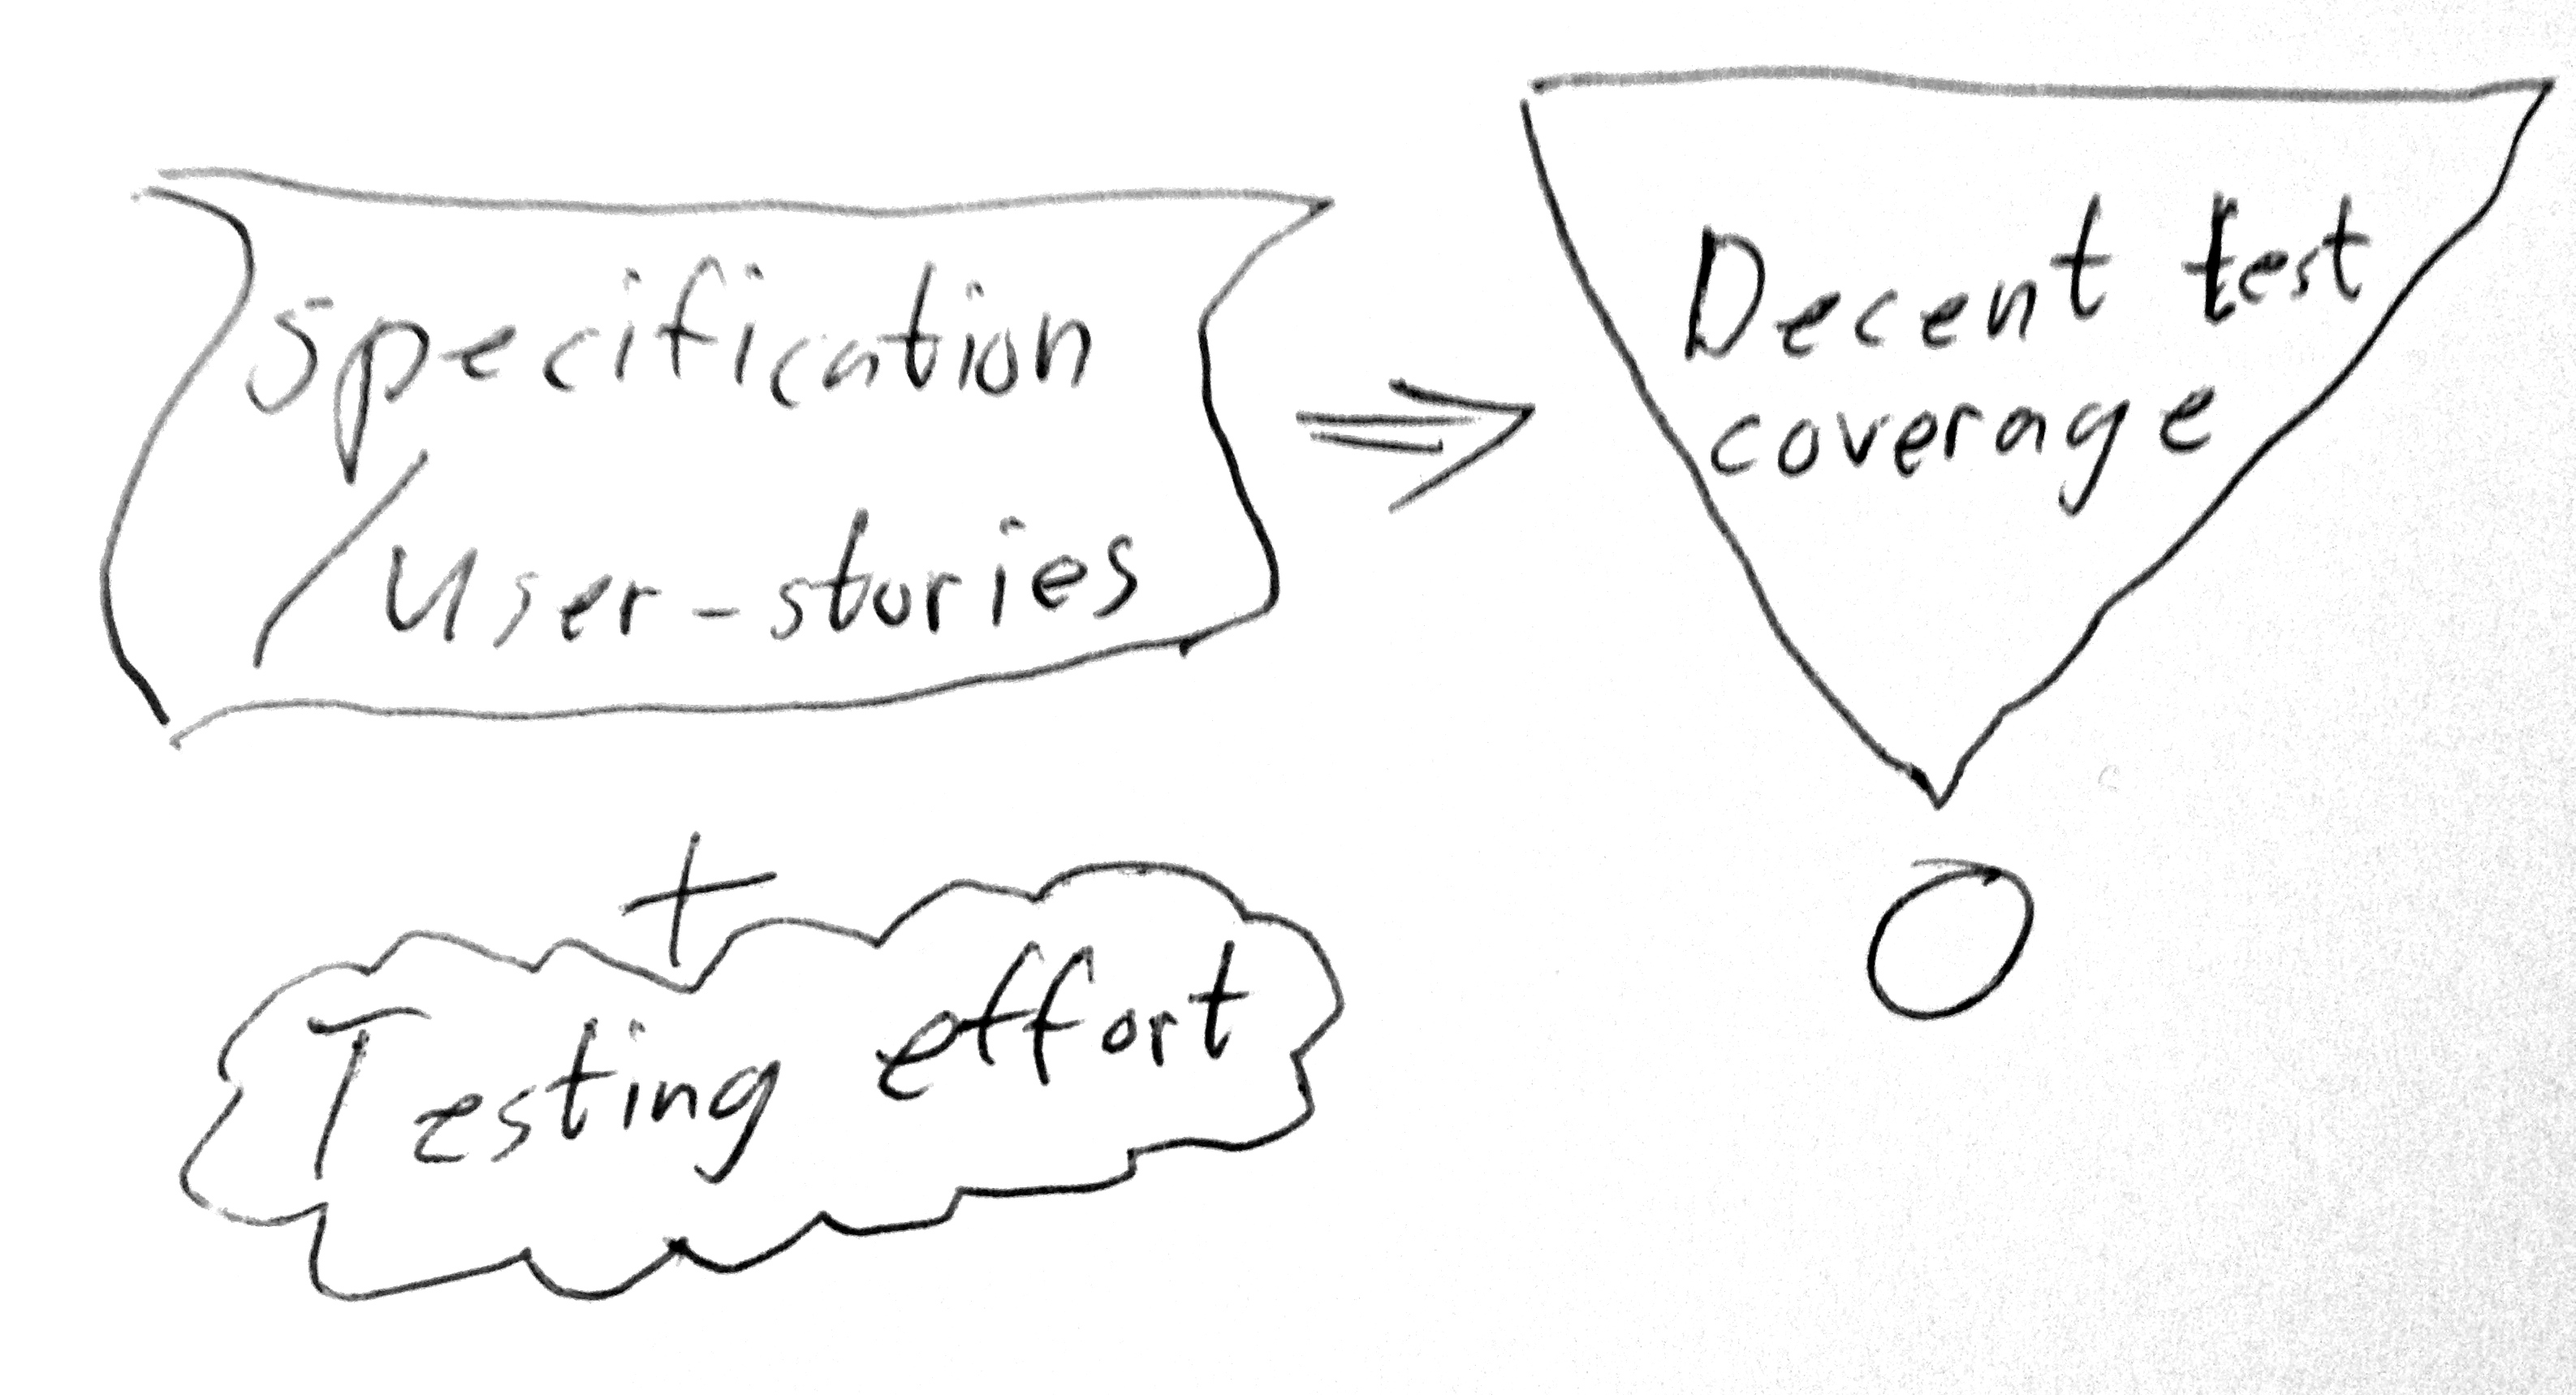 specification
/user-stories
+
Testing effort
⇒
Decent test
coverage